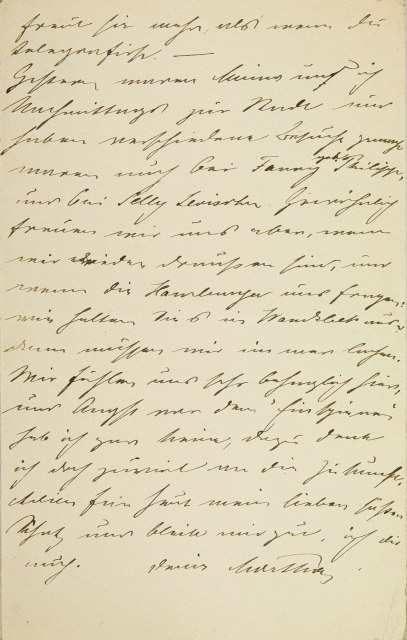 freut sie mehr, als wenn du
telegrafirst. —
Gestern waren Minna und ich
Nachmittags zur Stadt und
haben verschiedene Besuche gemacht
waren auch bei Fanny Philipp,
und bei Selly Levisohn. Gewöhnlich
freuen wir uns aber, wenn
wir wieder draußen sind, und
wenn die Hamburger uns fragen:
wie halten Sie es in Wandsbek aus
dann müssen wir immer lachen.
Wir fühlen uns sehr behaglich hier,
und Angst vor dem "Einspinnen"
hab ich gar keine, dazu denk
ich doch zuviel an die Zukunft.
Adieu für heut mein lieber süßer
Schatz und bleib mir gut, ich dir
auch. Deine Martha